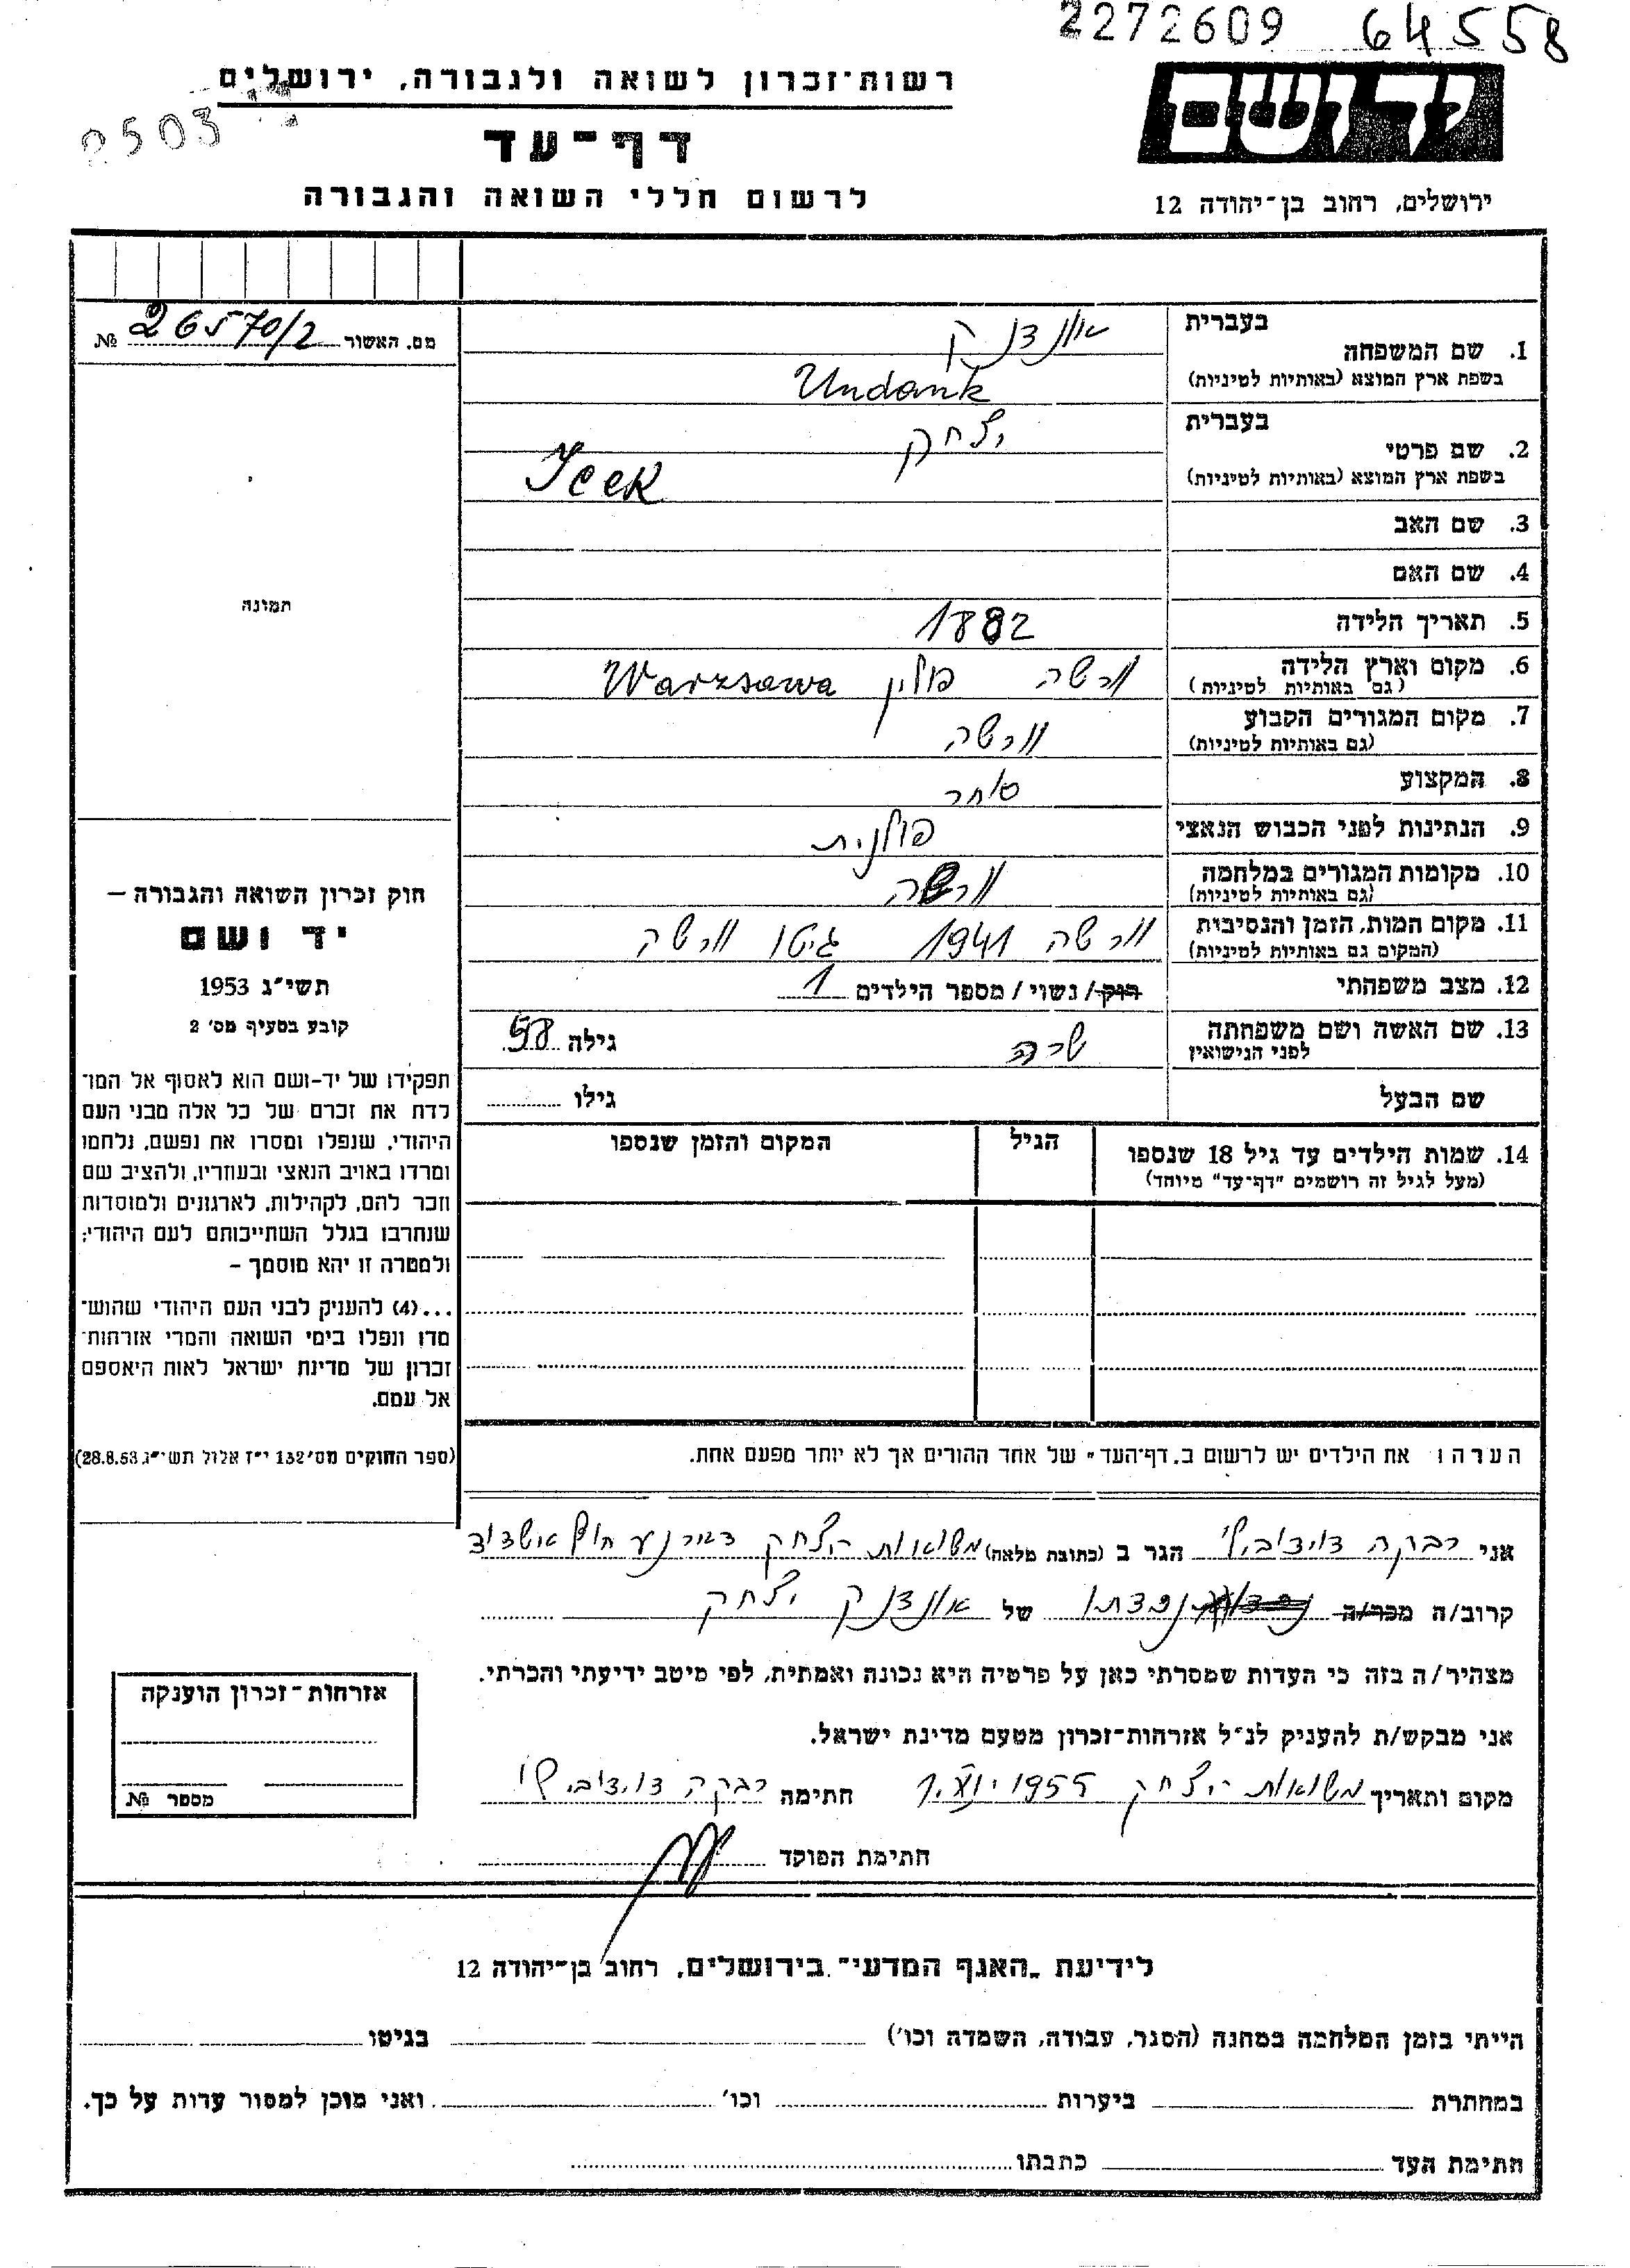 2272609 64558
רשות-זכרון לשואה ולגבורה, ירושלים
יד ושם
2503
דף-עד
לרשום חללי השואה והגבורה
ירושלים, רחוב בן-יהודה 12
מס. האשור 26570/2 №
בעברית
1. שם המשפחה אונדנק
בשפת ארץ המוצא (באותיות לטיניות) Undank
בעברית
2. שם פרטי יצחק
בשפת ארץ המוצא (באותיות לטיניות) Icek
3. שם האב
4. שם האם
תמונה
5. תאריך הלידה 1882
6. מקום וארץ הלידה ורשה פולין Warzsawa
(גם באותיות לטיניות)
7. מקום המגורים הקבוע ורשה
(גם באותיות לטיניות)
8. המקצוע סוחר
9. הנתינות לפני הכבוש הנאצי פולנית
10. מקומות המגורים במלחמה ורשה
(גם באותיות לטיניות)
11. מקום המות, הזמן והנסיבות ורשה 1941 גיטו ורשה
(המקום גם באותיות לטיניות)
12. מצב משפחתי רווק/נשוי/מספר הילדים 1
13. שם האשה ושם משפחתה שרה גילה 58
לפני הנישואין
שם הבעל גילו
14. שמות הילדים עד גיל 18 שנספו הגיל המקום והזמן שנספו
(מעל לגיל זה רושמים "דף-עד" מיוחד)
חוק זכרון השואה והגבורה –
יד ושם
תשי"ג 1953
קובע בסעיף מס' 2
תפקידו של יד-ושם הוא לאסוף אל המו־
לדת את זכרם של כל אלה מבני העם
היהודי, שנפלו ומסרו את נפשם, נלחמו
ומרדו באויב הנאצי ובעוזריו, ולהציב שם
וזכר להם, לקהילות, לארגונים ולמוסדות
שנחרבו בגלל השתייכותם לעם היהודי;
ולמטרה זו יהא מוסמך –
...(4) להעניק לבני העם היהודי שהוש־
מדו ונפלו בימי השואה והמרי אזרחות־
זכרון של מדינת ישראל לאות היאספם
אל עמם.
(ספר החוקים מס' 132 י"ז אלול תשי"ג 28.8.53)
הערה: את הילדים יש לרשום ב"דף-העד" של אחד ההורים אך לא יותר מפעם אחת.
אני רבקה דוידוביץ' הגר ב (כתובת מלאה) משואות יצחק דאר נע חוף אשדוד
קרוב/ה מכר/ה נכדתו של אונדנק יצחק
מצהיר/ה בזה כי העדות שמסרתי כאן על פרטיה היא נכונה ואמתית, לפי מיטב ידיעתי והכרתי.
אני מבקש/ת להעניק לנ"ל אזרחות-זכרון מטעם מדינת ישראל.
מקום ותאריך משואות יצחק 1955 חתימה רבקה דוידוביץ'
חתימת הפוקד
אזרחות-זכרון הוענקה
מספר №
לידיעת "האגף המדעי" בירושלים, רחוב בן-יהודה 12
הייתי בזמן המלחמה במחנה (הסגר, עבודה, השמדה וכו') בגיטו
במחתרת ביערות וכו' ואני מוכן למסור עדות על כך.
חתימת העד כתבתו